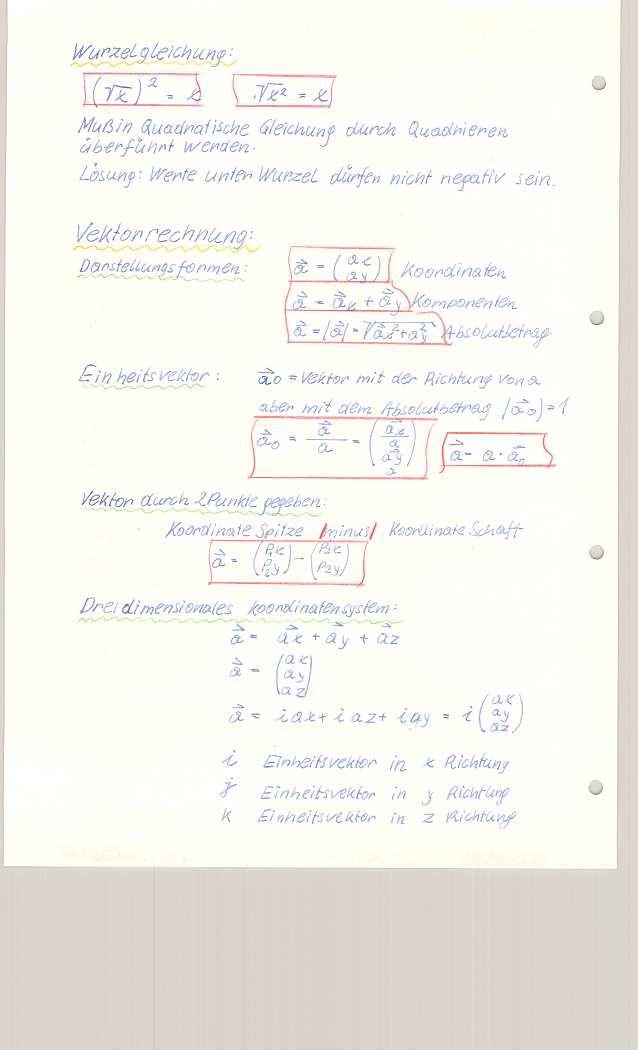 Wurzelgleichung:
(√x)² = x   √x² = x
Muß in Quadratische Gleichung durch Quadrieren
überführt werden.
Lösung: Werte unter Wurzel dürfen nicht negativ sein.
Vektorrechnung:
Darstellungsformen: a⃗ = (ax ay) Koordinaten
a⃗ = a⃗x + a⃗y Komponenten
a⃗ = |a⃗| = √a⃗x² + ay² Absolutbetrag
Einheitsvektor: a⃗o = Vektor mit der Richtung von a
aber mit dem Absolutbetrag |a⃗o| = 1
a⃗o = a⃗/a = (a⃗x/a a⃗y/a)   a⃗ = a · a⃗o
Vektor durch 2 Punkte gegeben:
Koordinate Spitze /minus/ Koordinate Schaft
a⃗ = (P1x P2y) − (P2x P2y)
Dreidimensionales Koordinatensystem:
a⃗ = a⃗x + a⃗y + a⃗z
a⃗ = (ax ay az)
a⃗ = i ax + i az + i ay = i (ax ay az)
i Einheitsvektor in x Richtung
j Einheitsvektor in y Richtung
k Einheitsvektor in z Richtung